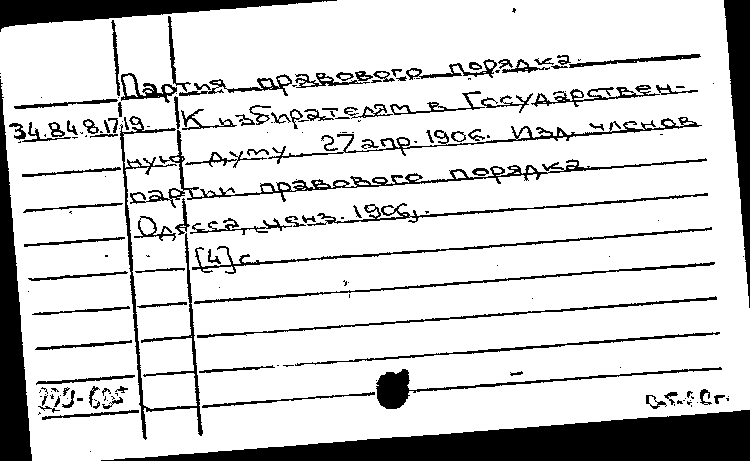 Партия правового порядка.
34.84.8.17/19. К избирателям в Государствен-
ную думу. 27 апр. 1906. Изд. членов
партии правового порядка.
Одесса, ценз. 1906.
[4] с.